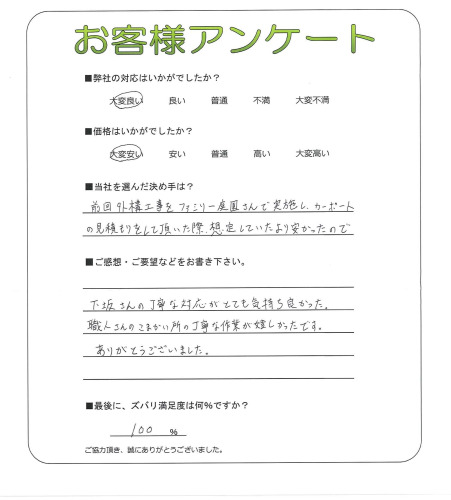 お客様アンケート
■弊社の対応はいかがでしたか？
大変良い　良い　普通　不満　大変不満
■価格はいかがでしたか？
大変安い　安い　普通　高い　大変高い
■当社を選んだ決め手は？
前回外構工事をファミリー庭園さんで実施し、カーポート
の見積もりをして頂いた際、想定していたより安かったので
■ご感想・ご要望などをお書き下さい。
下坂さんの丁寧な対応がとても気持ち良かった。
職人さんのこまかい所の丁寧な作業が嬉しかったです。
ありがとうございました。
■最後に、ズバリ満足度は何%ですか？
100 %
ご協力頂き、誠にありがとうございました。